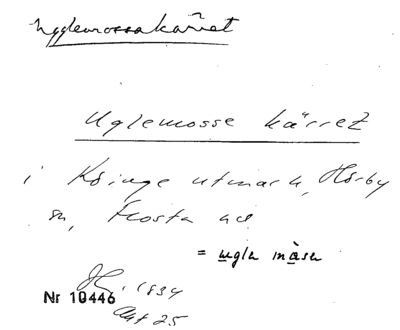 Ugglemossakärret
Uglemosse kärret
i Köinge utmark, Hörby
sn, Frosta hd
= ugla måsa
1834
Nr 10446
Akt 25